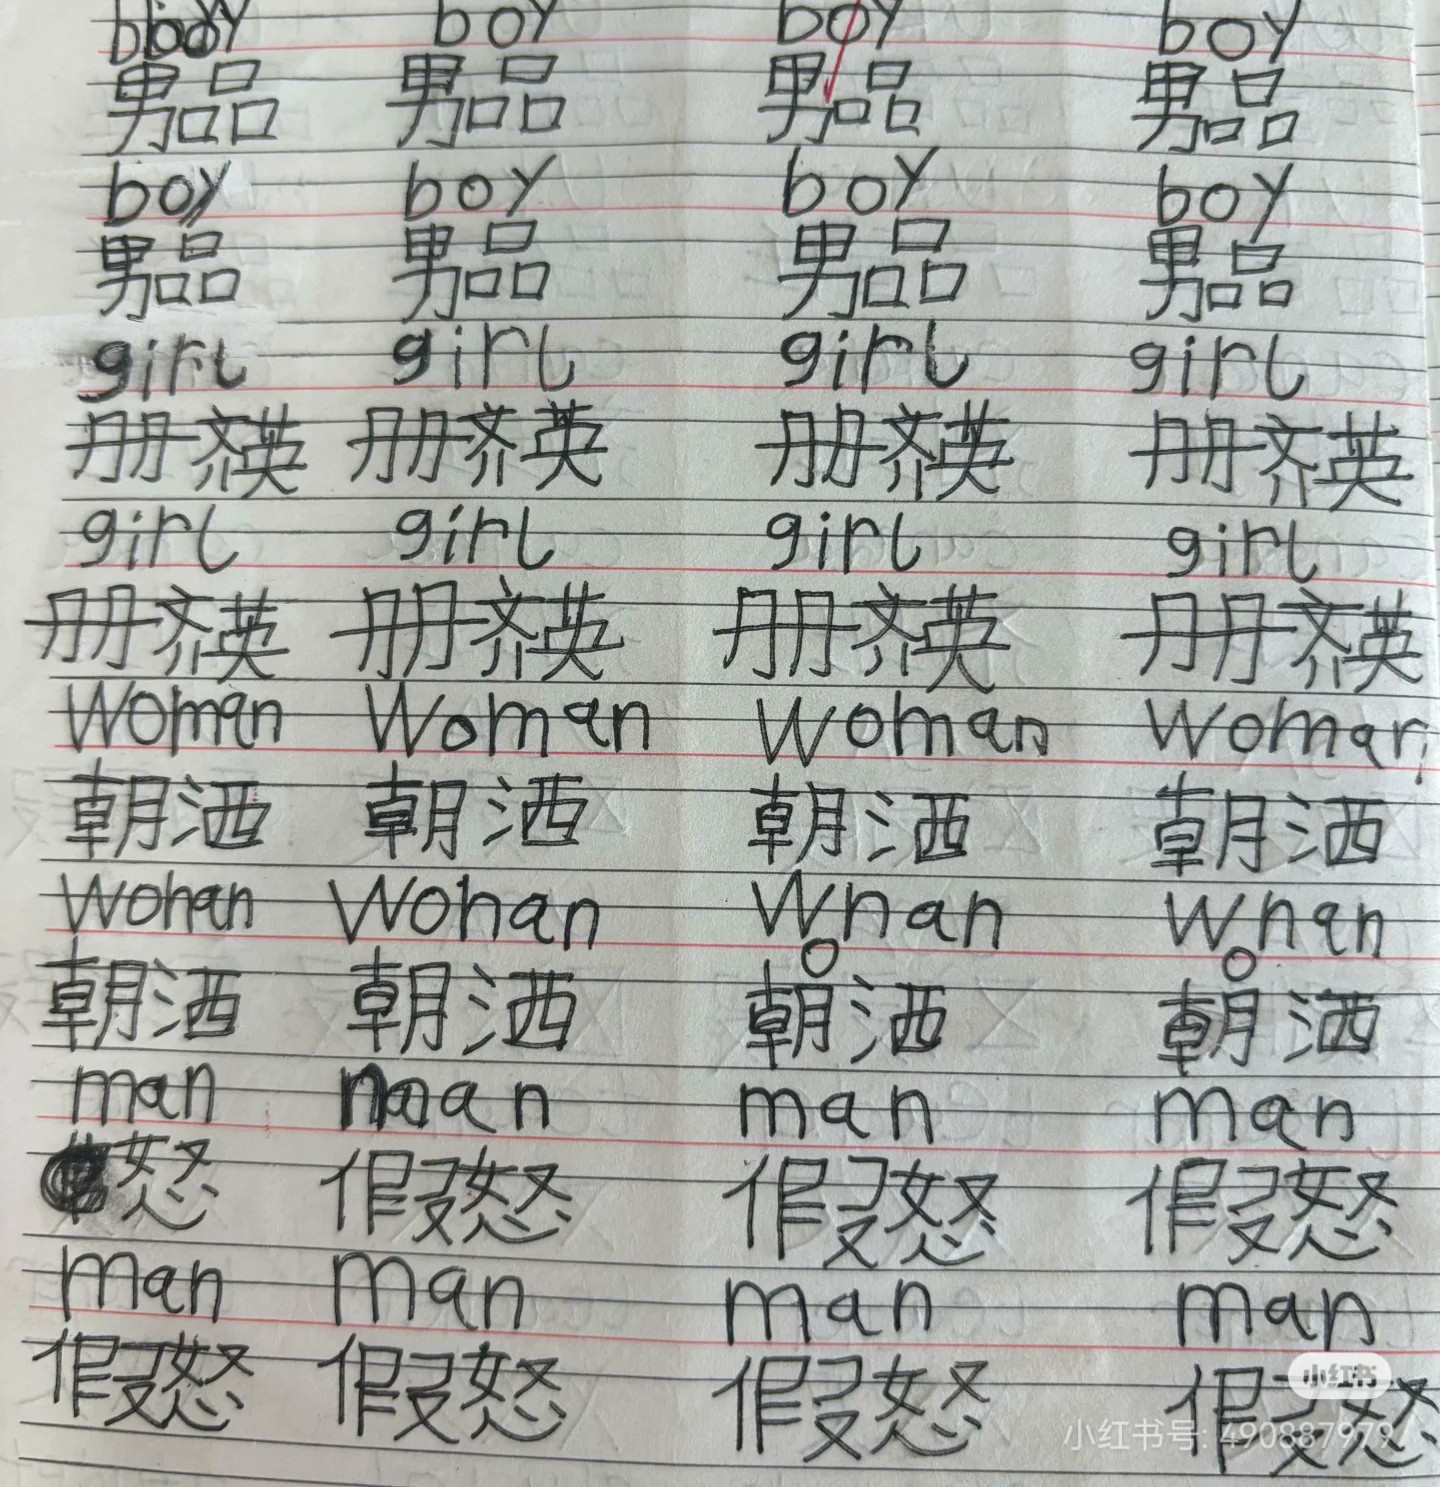 boy boy boy boy
男品 男品 男品 男品
boy boy boy boy
男品 男品 男品 男品
girl girl girl girl
册齐英 册齐英 册齐英 册齐英
girl girl girl girl
册齐英 册齐英 册齐英 册齐英
Woman Woman Woman Woman
朝洒 朝洒 朝洒 朝洒
Wohan Wohan Wohan Wohan
朝洒 朝洒 朝洒 朝洒
man man man man
怒 假怒 假怒 假怒
man man man man
假怒 假怒 假怒 假怒
小红书
小红书号: 490887979